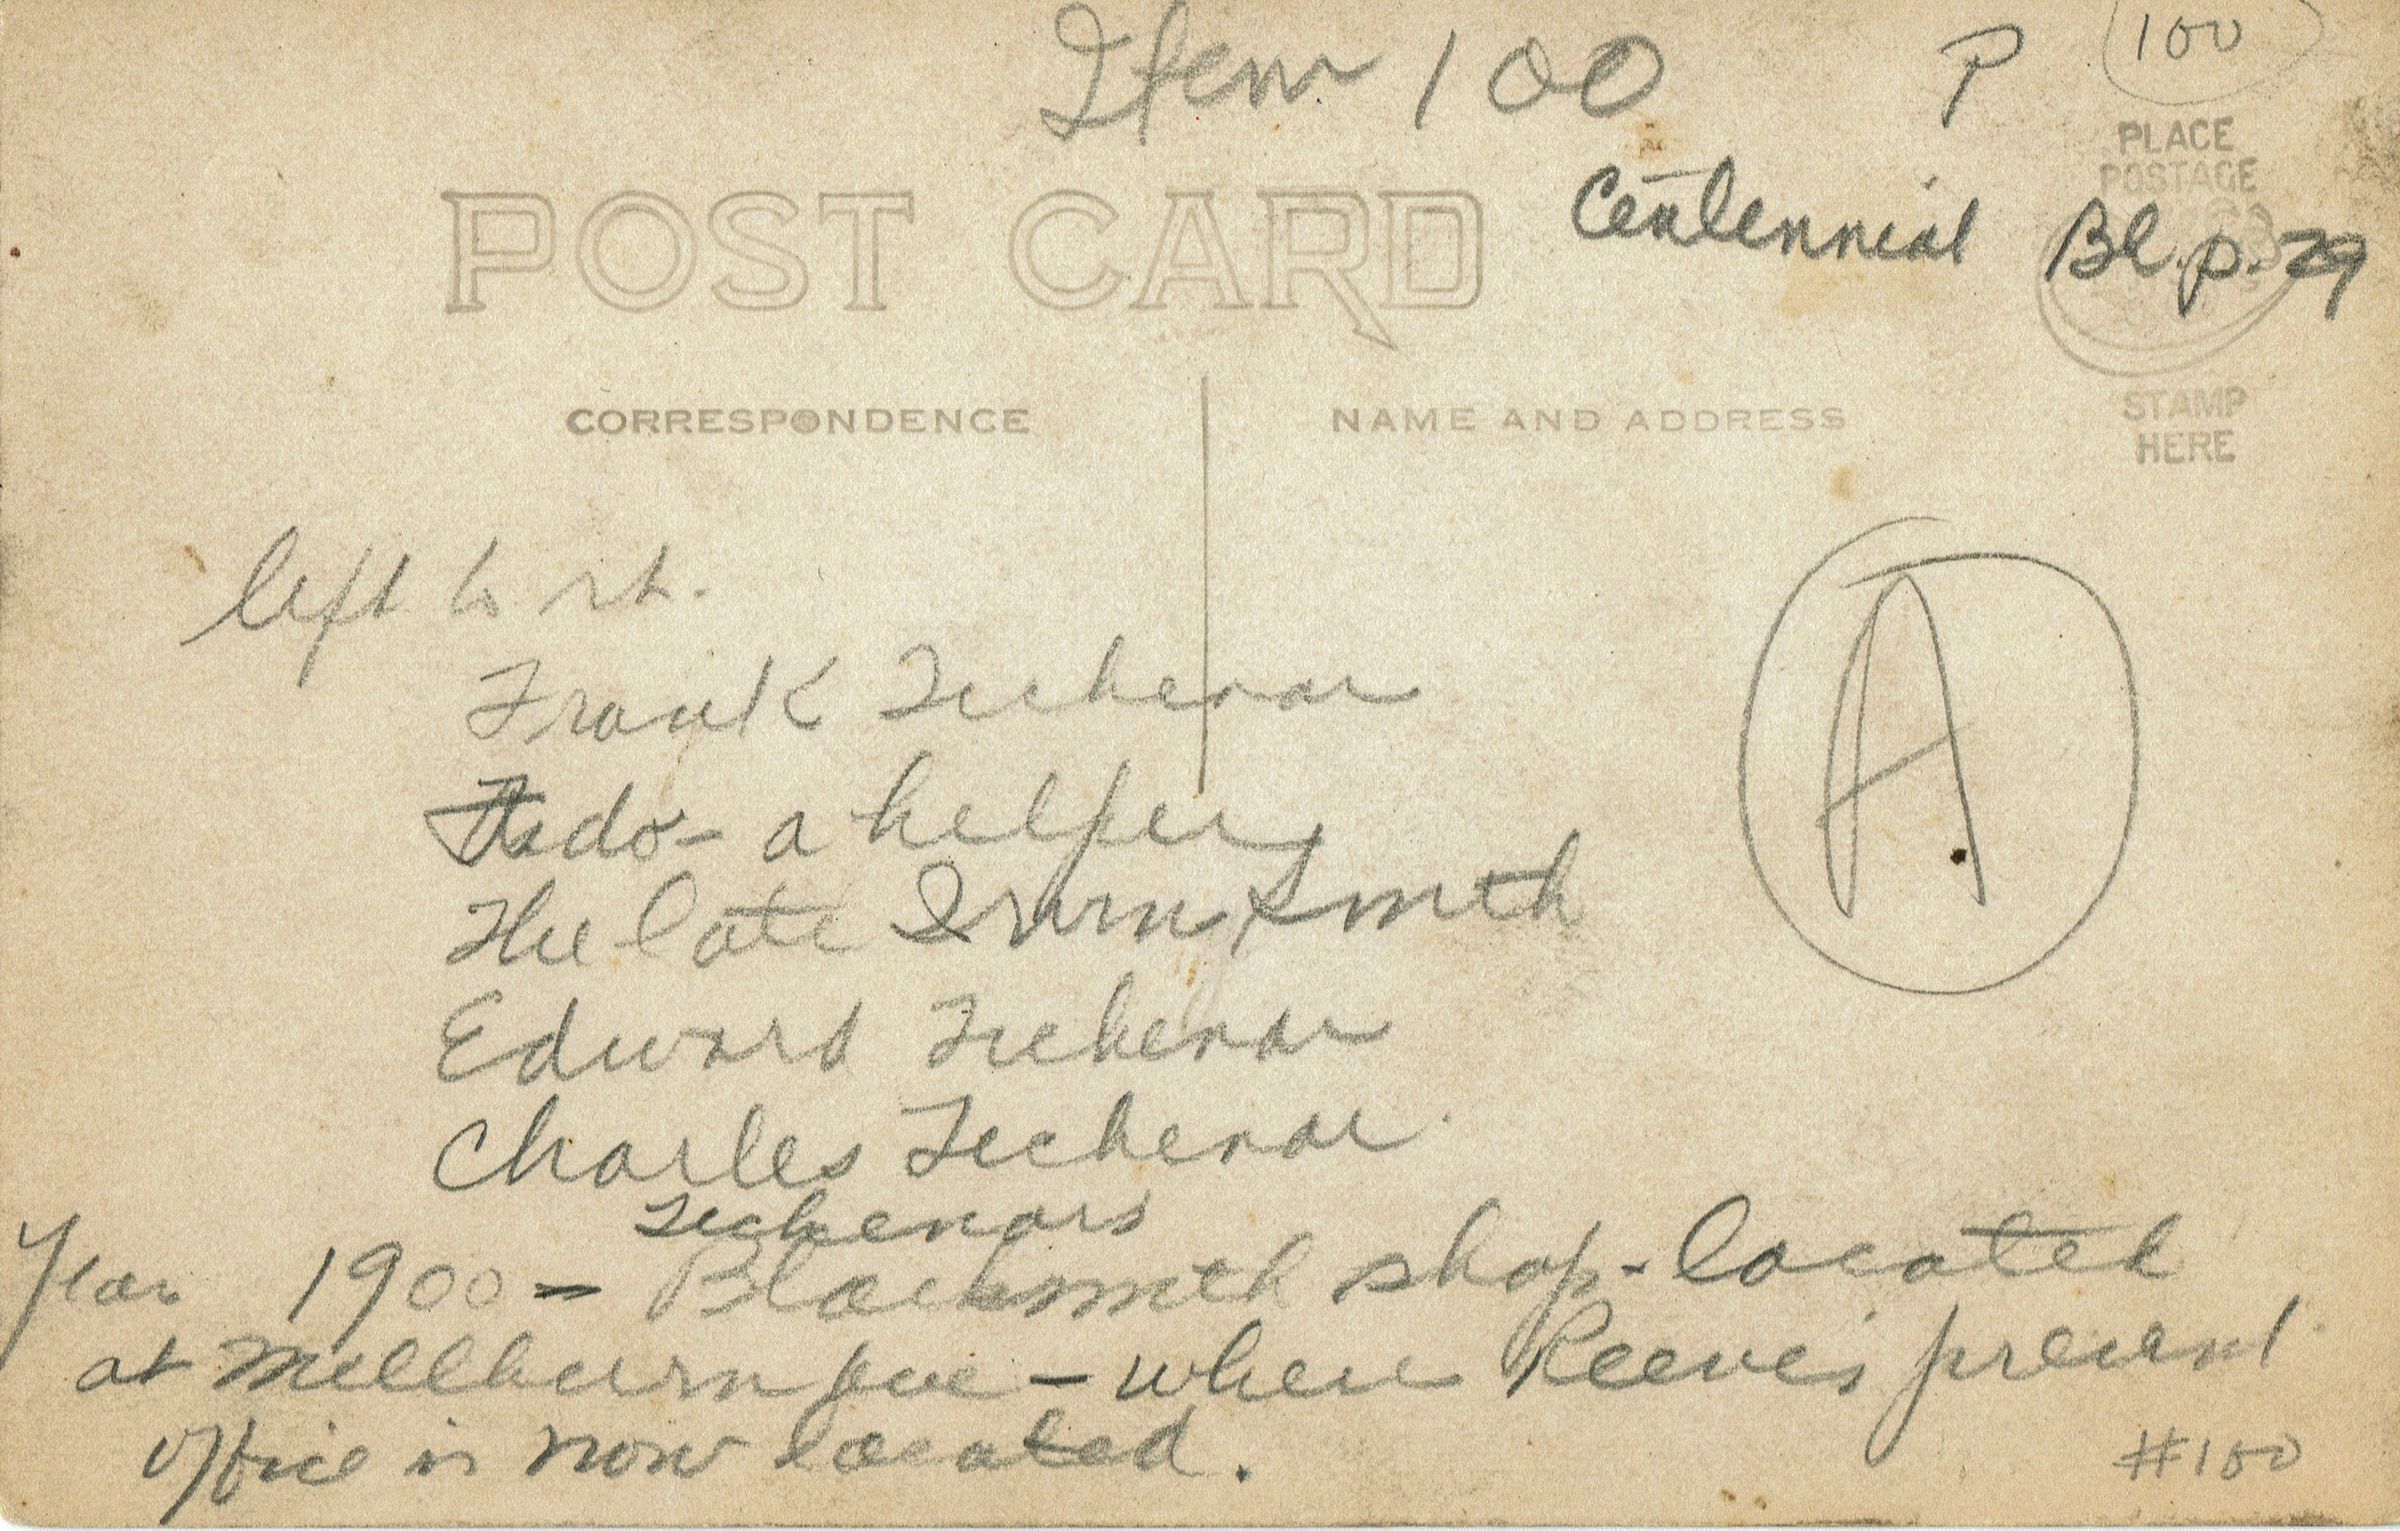 Item 100 P 100
PLACE
POSTAGE
Centennial Bl. p. 29
POST CARD
STAMP
HERE
CORRESPONDENCE NAME AND ADDRESS
left to rt.
Frank Tichenor
A
do - a helper
The late Smith
Edward Tichenor
Charles Tichenor.
Tichenors
Year 1900 - Blacksmith shop - located
at Millburn Ave - where Reeve's present
office is now located.
#100